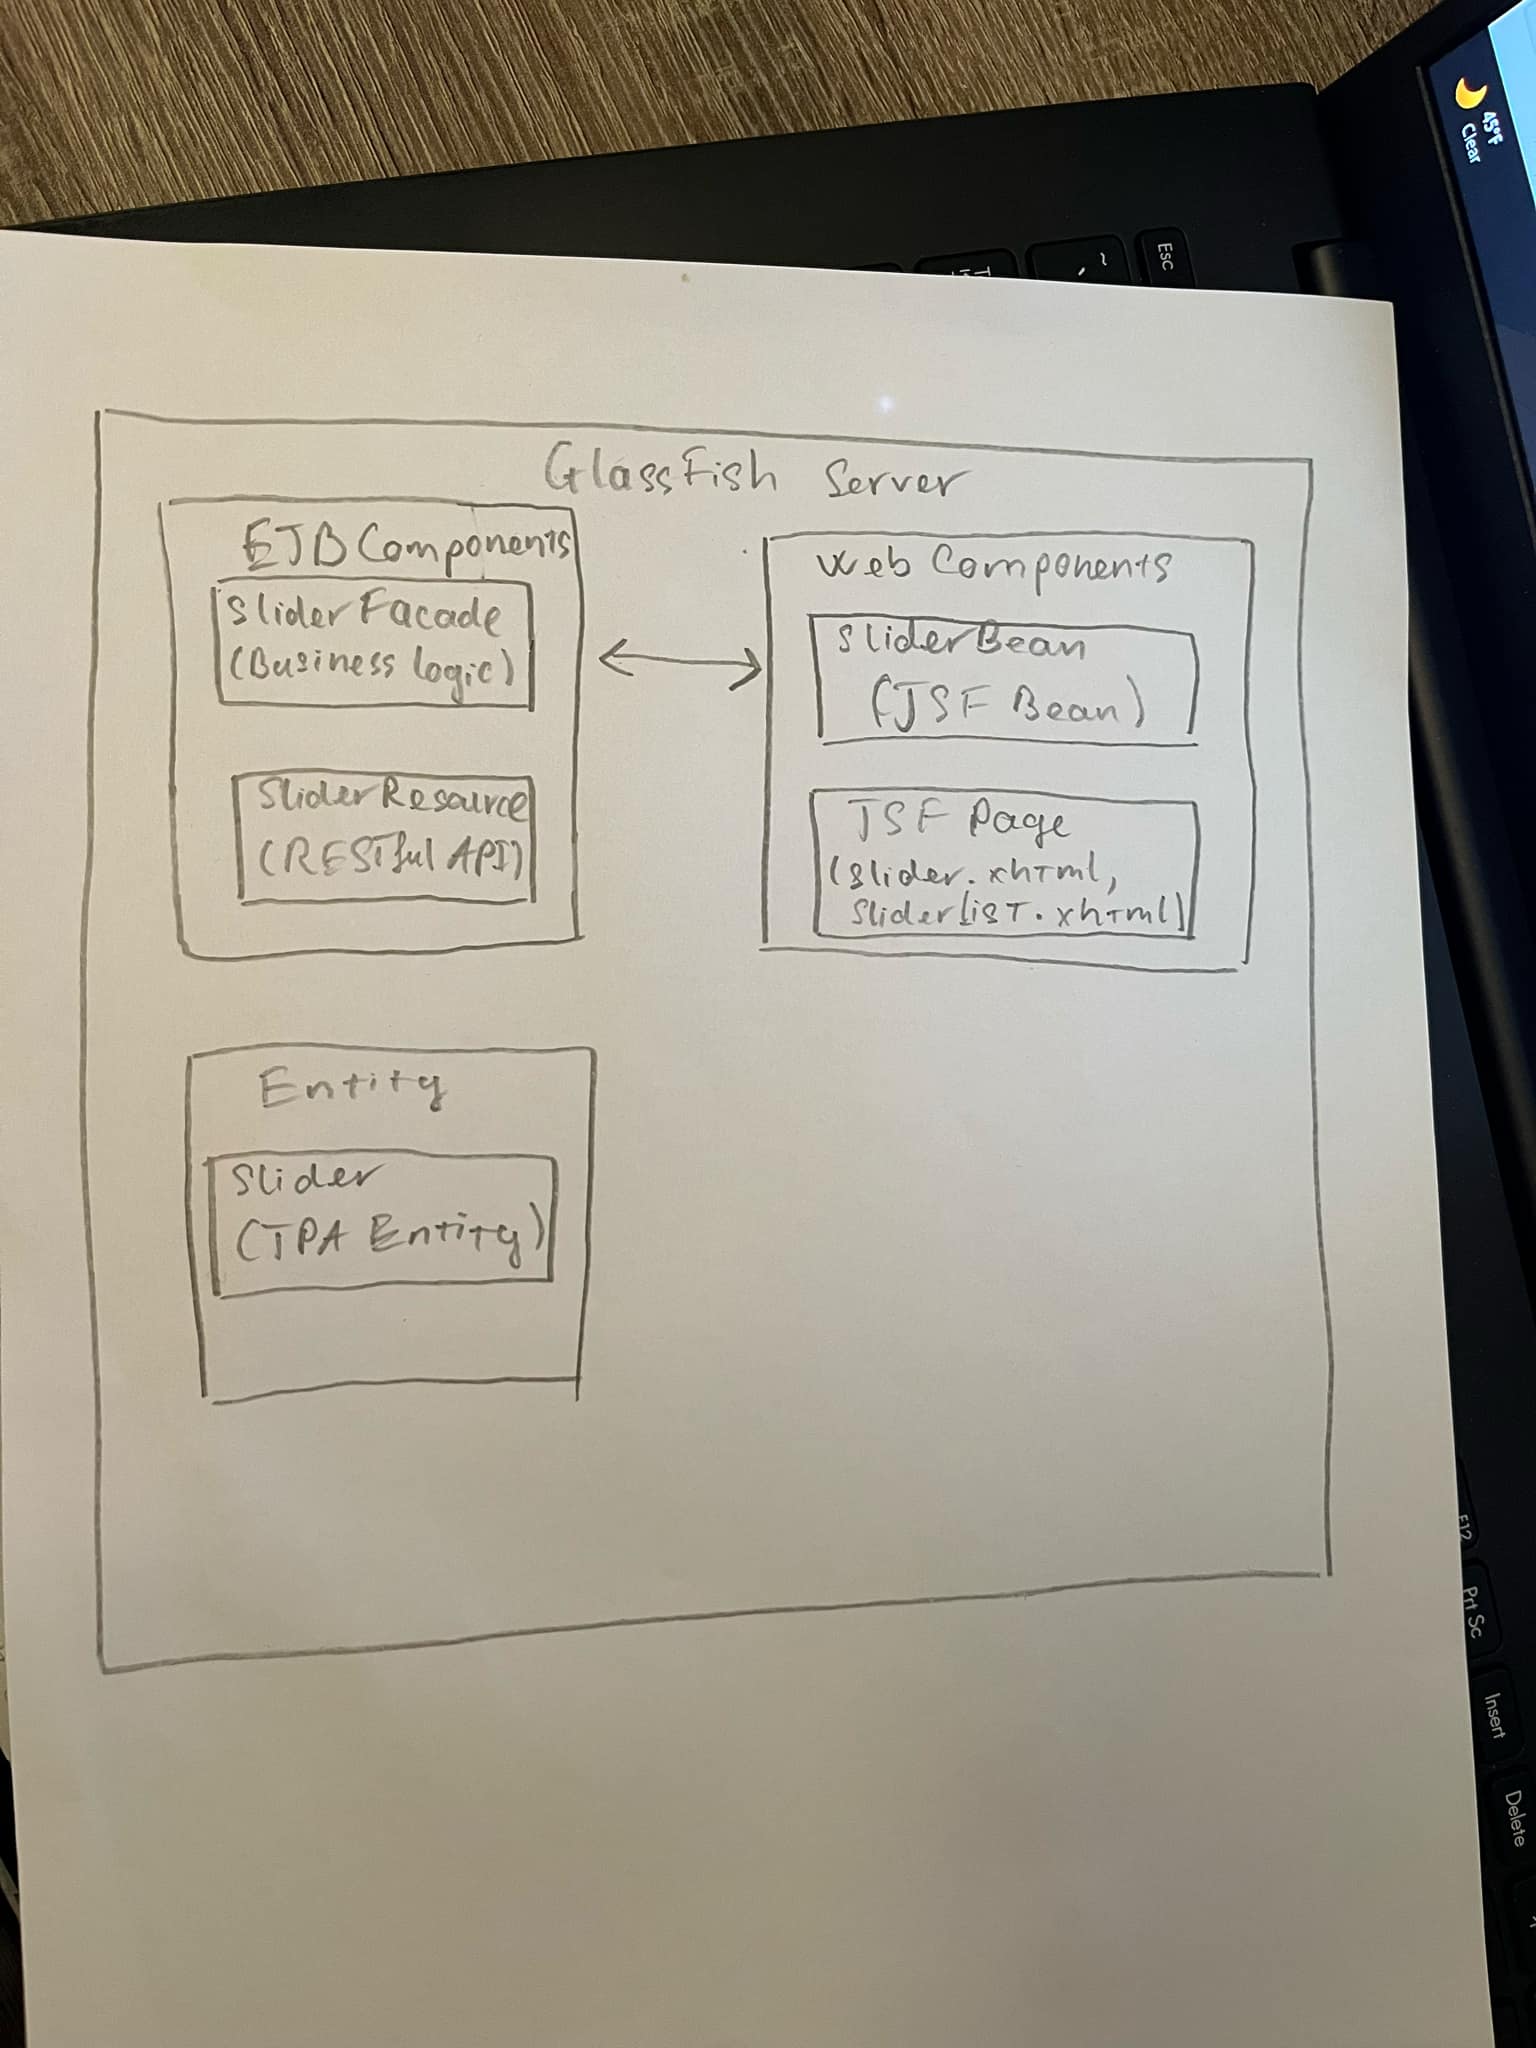 45°F
Clear
Esc
~
GlassFish Server
EJB Components
SliderFacade
(Business logic)
SliderResource
(RESTful API)
Web Components
SliderBean
(JSF Bean)
JSF Page
(slider.xhtml,
sliderlist.xhtml)
Entity
Slider
(JPA Entity)
F12
Prt Sc
Insert
Delete